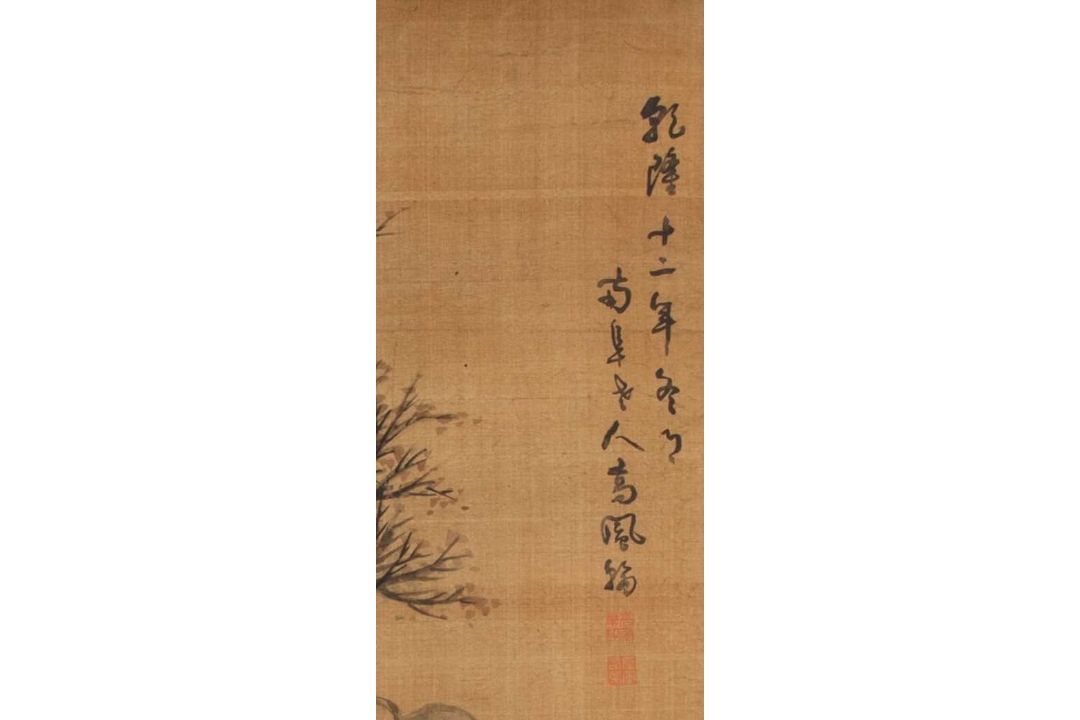 乾隆十二年冬月
南阜老人高凤翰